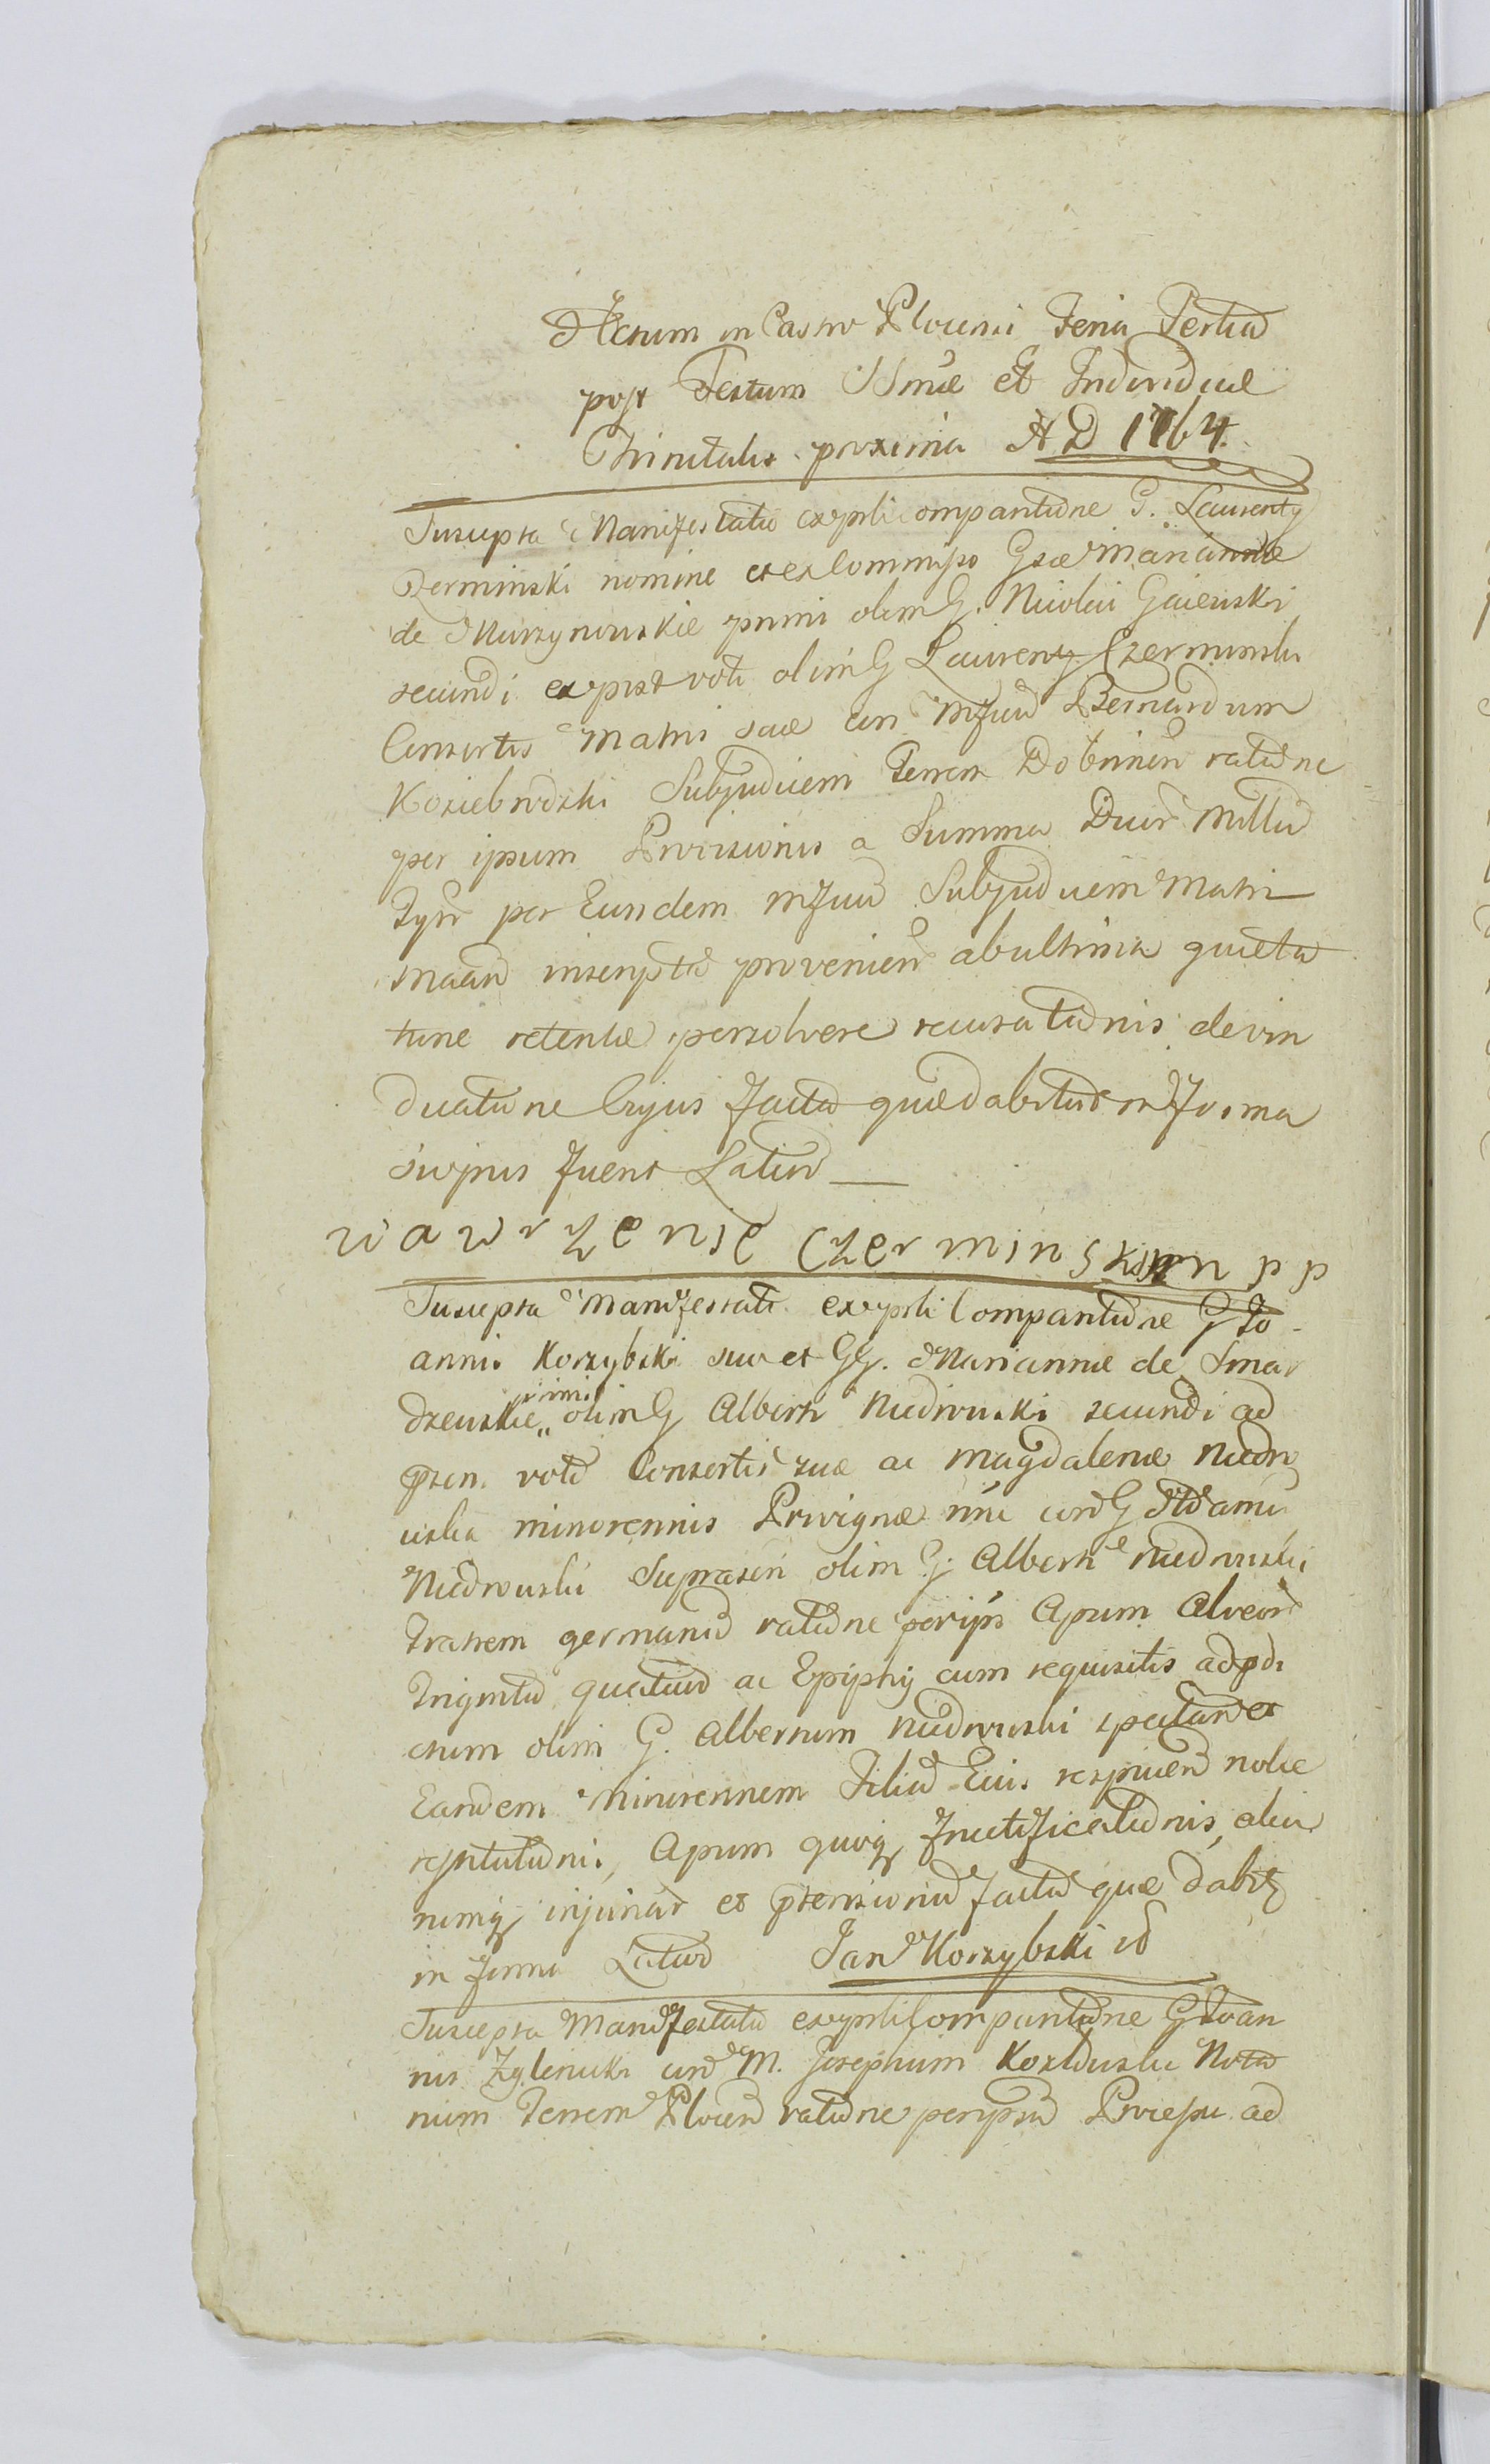 Actum in Castro Plocensi Feria Tertia
post Festum SSmæ et Individuæ
Trinitatis proxima A D 1764.
Suscepta Manifestatio ex psli Compantione G. Laurentij
Czerminski nomine et ex Commisso Gsæ Mariannæ
de Murzynowskie primi olim G. Nicolai Gaiewski
secundi ex post voti olim G Laurentij Czerminski
Consortis Matris suæ con Mfum Bernardum
Kosiebrodzki Subjudicem Terræ Dobrinen ratione
per ipsum Provisionis a Summa Duor Milliu
Tyn per Eundem Mfum Subjudicem Matri
Maan inscripta provenien ab ultima quieta
tione retentæ persolvere recusationis de vin
dicatione Cujus facta quæ dabitur in forma
sui prius fuerit Latior
wawrzenic Czerminski mpp
Suscepta Manifestatio ex psli Compantione G Jo
annis Korzybski suo et GG. Mariannæ de Smar
dzewskie primi olim G Alberti Niedrowski secundi ad
præn. voti Consortis suæ ac Magdalenæ Niedro
wska minorennis Privignæ con G Adamu
Niedrowski Suprascri olim G Alberti Niedrowski
Fratrem germanu ratione per ips Apum Alveor
Triginta quatuor ac Ephiphij cum requisitis ad pdi
ctum olim G. Albertum Niedrowski spectan et
Eandem Minorennem Filia Eius respicien nolæ
restitutionis, Apum quoq fructificationis, alia
rumq injuriar et prtensionu facta quæ dabitz
in forma Latior Jan Korzybski
Suscepta Manifestatio ex psli Compantione G Joan
nis Zglenicki con M. Josephum Kozłowski Nota
rium Terræ Plocen ratione per ipsu Processu ad